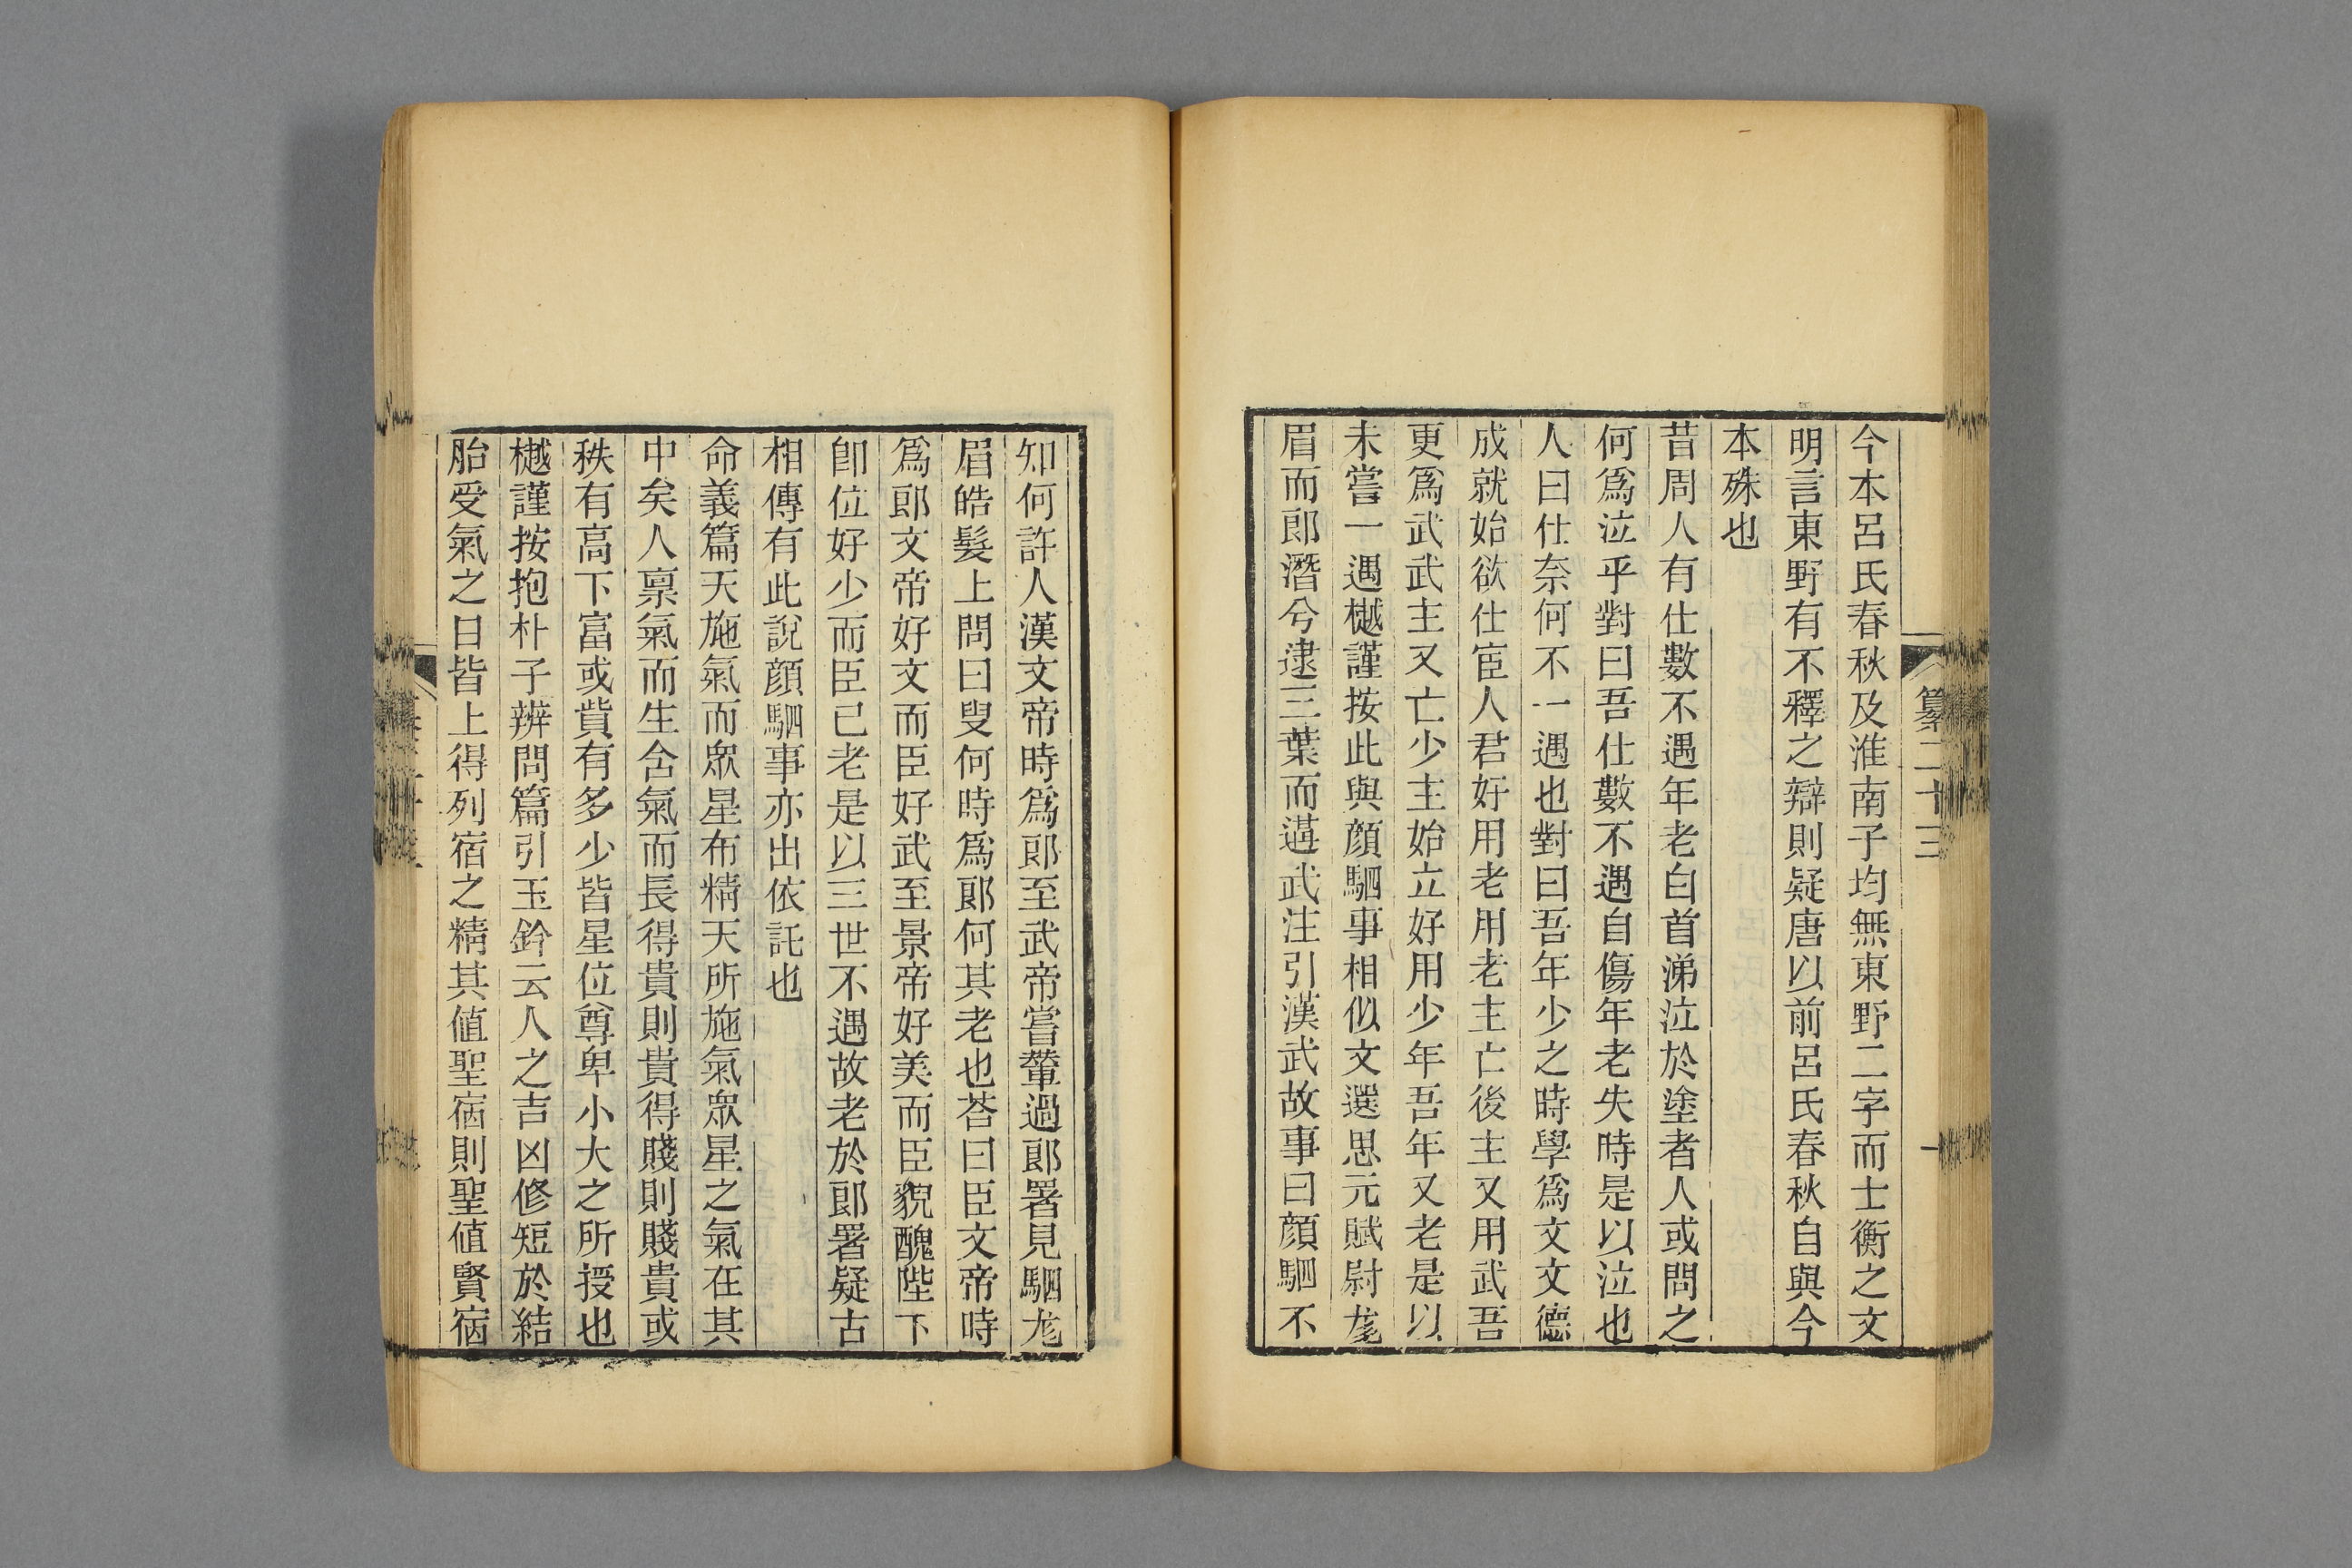 纂二十三
一
今本呂氏春秋及淮南子均無東野二字而士衡之文
明言東野有不釋之辯則疑唐以前呂氏春秋自與今
本殊也
昔周人有仕數不遇年老白首涕泣於塗者人或問之
何爲泣乎對曰吾仕數不遇自傷年老失時是以泣也
人曰仕奈何不一遇也對曰吾年少之時學爲文文德
成就始欲仕宦人君好用老用老主亡後主又用武吾
更爲武武主又亡少主始立好用少年吾年又老是以
未嘗一遇樾謹按此與顔駟事相似文選思元賦尉尨
眉而郎潛兮逮三葉而遘武注引漢武故事曰顔駟不
知何許人漢文帝時爲郎至武帝嘗輦過郎署見駟尨
眉皓髮上問曰叟何時爲郎何其老也荅曰臣文帝時
爲郎文帝好文而臣好武至景帝好美而臣貌醜陛下
卽位好少而臣已老是以三世不遇故老於郎署疑古
相傳有此說顔駟事亦出依託也
命義篇天施氣而眾星布精天所施氣眾星之氣在其
中矣人稟氣而生含氣而長得貴則貴得賤則賤貴或
秩有高下富或貲有多少皆星位尊卑小大之所授也
樾謹按抱朴子辨問篇引玉鈐云人之吉凶修短於結
胎受氣之日皆上得列宿之精其值聖宿則聖值賢宿